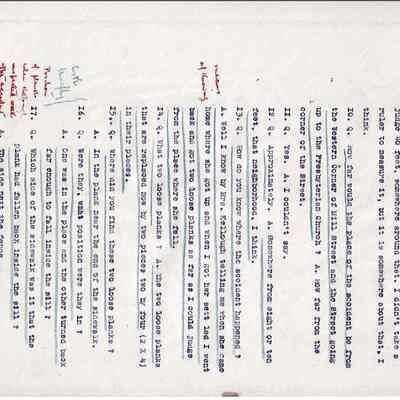 Judge 40 feet, somewhere around that, I didn't take a
ruler to measure it, but it is somewhere about that, I
think.
10. Q. How far would the place of the accident be from
the Western Corner of Mill Street and the Street going
up to the Presbyterian Church ? A. How far from the
corner of the Street.
11 Q. Yes, A. I couldn't say.
12. Q. Approximately. A. Somewhere from eight or ten
feet, that neighborhood, I think.
13. Q. How do you know where the accident happened ?
A. Well I know by Mrs. telling me when she came
home where she got up and when I got her settled I went
back and got two loose planks as far as I could judge
from the place where she fell.
14. Q. What two loose planks ? A. The two loose planks
that are replaced now by two pieces two by four (2 X 4)
in their places.
15. Q. Where did you find these two loose planks ?
A. In the plank near the end of the sidewalk.
16. Q. Were they, what position were they in ?
A. One was in the place and the other turned back
far enough to fall inside the sill ?
17. Q. Which side of the sidewalk was it that the
plank had fallen back inside the sill ?
A. The side next the fence.
means
of knowing
Position
of planks